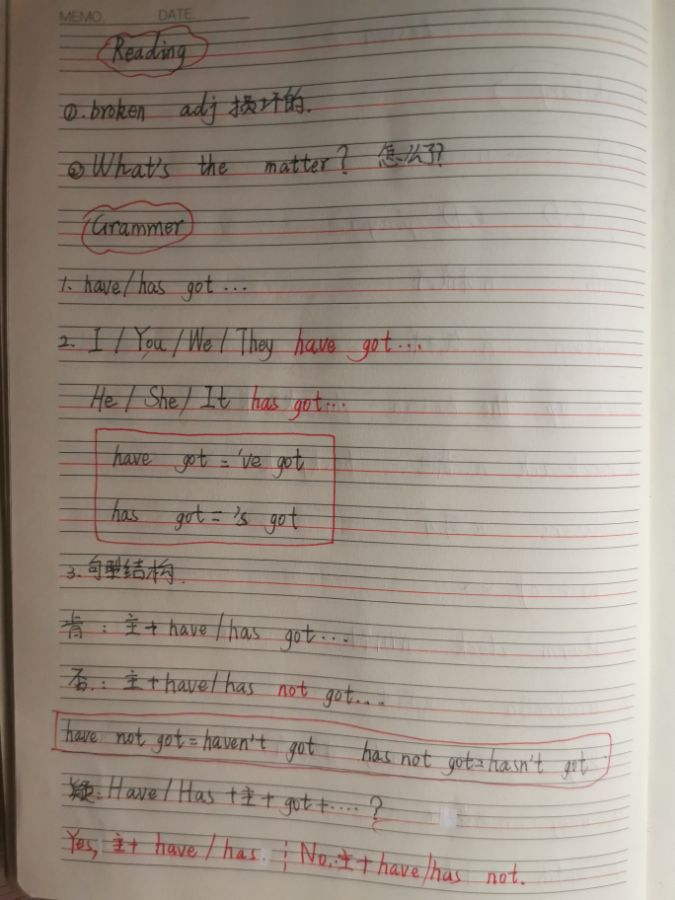 MEMO. DATE
Reading
①. broken adj 损坏的.
② What's the matter? 怎么了?
Grammer
1. have/has got ...
2. I / You / We / They have got...
He / She / It has got...
have got = 've got
has got = 's got
3. 句型结构.
肯: 主+ have / has got ...
否.: 主+have/has not got....
have not got = haven't got has not got = hasn't got
疑: Have / Has +主+ got +.... ?
Yes, 主+ have / has. ; No. 主+ have/has not.